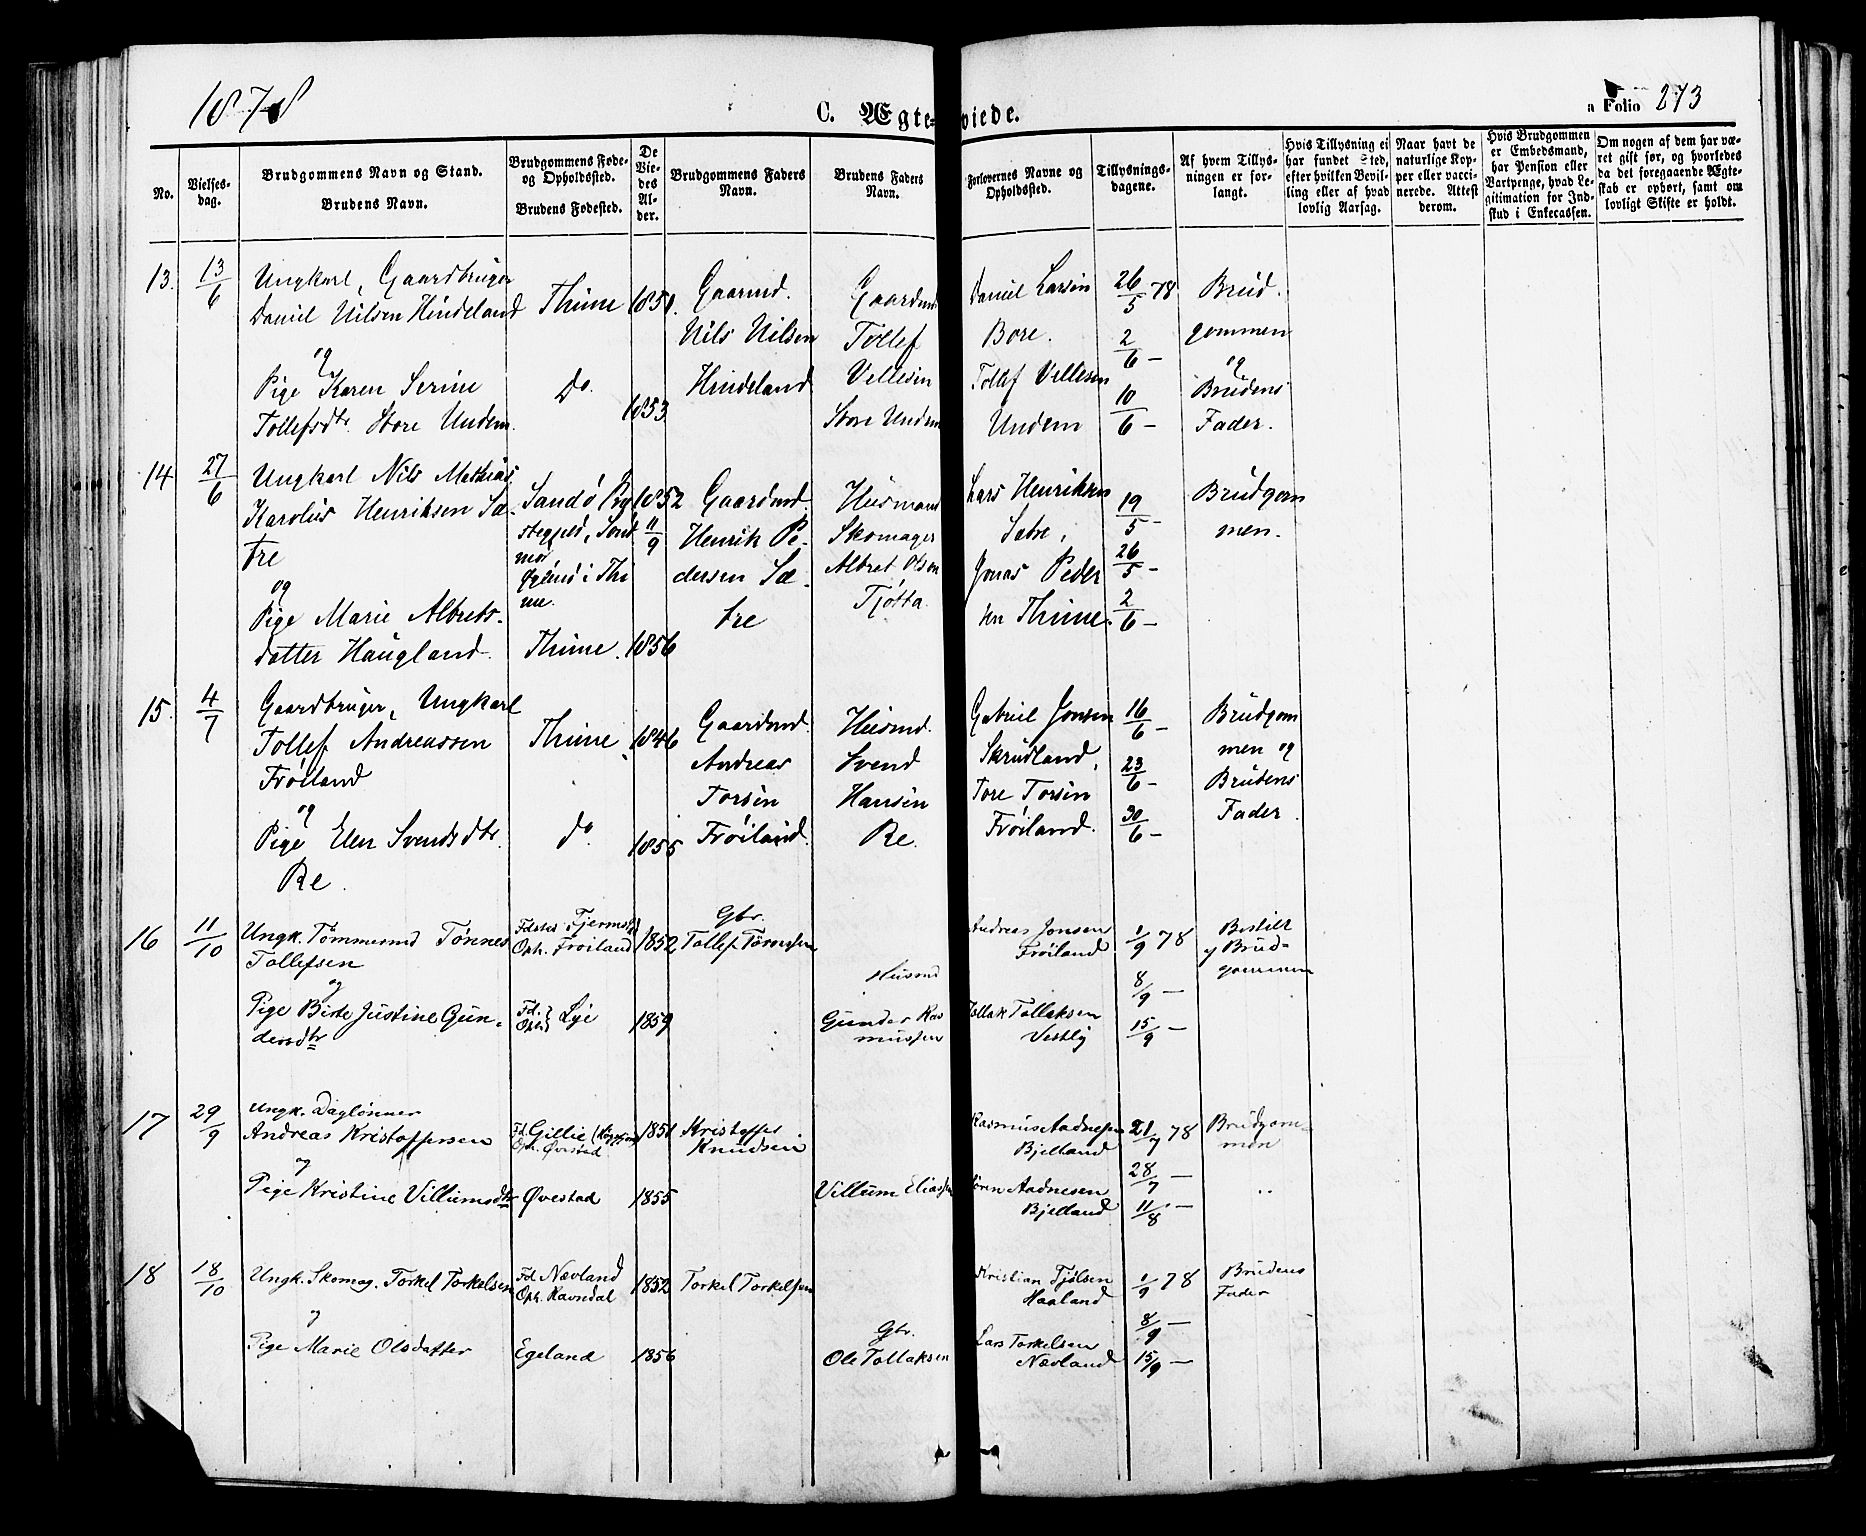 1878
C. Ægteviede.
a Folio 273
No.
Vielses-
dag.
Brudgommens Navn og Stand.
Brudens Navn.
Brudgommens Føde-
og Opholdssted.
Brudens Fødested.
De
Vie-
des
Al-
der.
Brudgommens Faders
Navn.
Brudens Faders
Navn.
Forlovernes Navne og
Opholdssted.
Tillysnings-
dagene.
Af hvem Tillys-
ningen er for-
langt.
Hvis Tillysning ei
har fundet Sted,
efter hvilken Bevil-
ling eller af hvad
lovlig Aarsag.
Naar havt de
naturlige Kop-
per eller vacci-
nerede. Attest
derom.
Hvis Brudgommen
er Embedsmand,
har Pension eller
Vartpenge, hvad Le-
gitimation for Ind-
skud i Enkecassen.
Om nogen af dem har væ-
ret gift før, og hvorledes
da det foregaaende Ægte-
skab er ophørt, samt om
lovligt Skifte er holdt.
13.
13/6
Ungkarl, Gaardbruger
Daniel Nilsen Hindeland
og
Pige Karen Serine
Tollefsdtr. Store Undem.
Thime
Do.
1850.
1853
Gaarmd.
Nils Nilsen
Hindeland
Gaardmd
Tollef
Vellesen
Store Undem
Daniel Larsen
Bore.
Tollef Vellesen
Undem
26/5 78
2/6 —
10/6 —
Brud-
gommen
og
Brudens
Fader.
14
27/6
Ungkarl Nils Mathias
Karolius Henriksen Sæ-
tre
og
Pige Marie Albrets-
datter Haugland.
Sandø
Thime.
1852
11/9
1856
Gaardmd.
Henrik Pe-
dersen Sæ-
tre
Husmand
Skomager
Albret Olsen
Tjøtta.
Lars Henriksen
Sætre,
Jonas Peder
sen Thime.
19/5 —
26/5 —
2/6 —
Brudgom
men.
15.
4/7
Gaardbruger, Ungkarl
Tollef Andreassen
Frøiland
og
Pige Elen Svendsdtr.
Re.
Thime
Do
1846
1855
Gaardmd.
Andreas
Torsen
Frøiland.
Husmd.
Svend
Hansen
Re.
Gabriel Jonsen
Skrudland,
Tore Torsen
Frøiland.
16/6 —
23/6 —
30/6 —
Brudgom
men og
Brudens
Fader.
16
11/10
Ungk. Tømmermd Tønnes
Tollefsen
og
Pige Birte Justine Gun-
dersdtr
Oph. Frøiland
Fd. Lye
1852
1859
Gbr.
Tollef Tønnesen
Husmd
Gunder Ras
mussen
Andreas Jonsen
Frøiland
Tollak Tollaksen
Vestly
1/9 78
8/9 —
15/9 —
Bestilt
af Brud-
gommen
17
29/9
Ungk. Daglønner
Andreas Kristoffersen
og
Pige Kristine Villumsdtr
Fd. Gillie
Oph. Øvestad
Øvestad
1851
1855
Kristoffer
Knudsen
Villum Eliassen
Rasmus Aadnesen
Bjelland
Søren Aadnesen
Bjelland
21/7 78
28/7 —
11/8 —
Brudgom-
men
18
18/10
Ungk. Skomag. Torkel Torkelsen
og
Pige Marie Olsdatter
Fd. Nævland
Oph. Ravndal
Egeland
1852
1856
Torkel Torkelsen
Gbr.
Ole Tollaksen
Kristian Tjølsen
Haaland
Lars Torkelsen
Nævland
1/9 78
8/9 —
15/9 —
Brudens
Fader